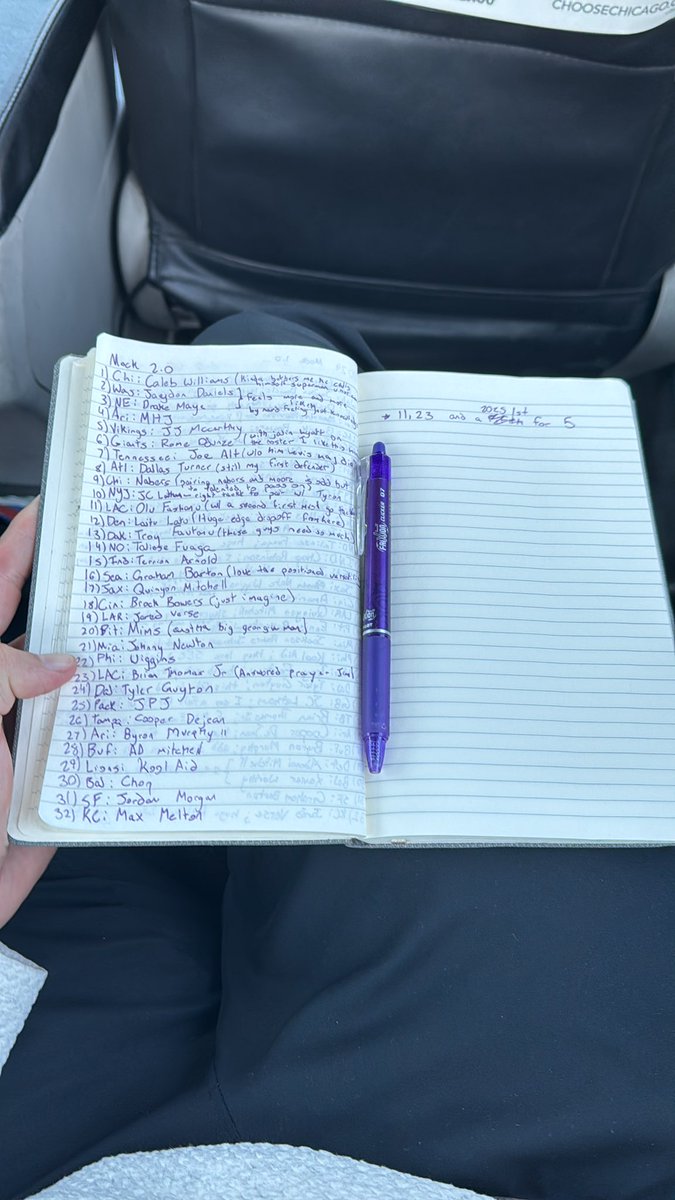 CHOOSECHICAGO.C
Mock 2.0
1) Chi: Caleb Williams (Kinda bothers me he calls himself superman
2) Was: Jayden Daniels
3) NE: Drake Maye } feels more and more likely
4) Ari: MHJ by hard feeling that
5) Vikings: JJ McCarthy
6) Giants: Rome Odunze (with jalin hyatt on the roster I like this
7) Tennessee: Joe Alt (w/o him Levis may die
8) Atl: Dallas Turner (still my first defender)
9) Chi: Nabers (pairing nabers and moore is odd but too talented to pass on)
10) NYJ: JC Latham right tackle to pair w/ Tyron
11) LAC: Olu Fashanu (w/ a second first next
12) Den: Laitu Latu (Huge edge dropoff from here)
13) Oak: Troy Fautanu (these guys need so much)
14) NO: Taliese Fuaga
15) Ind: Terrion Arnold
16) Sea: Graham Barton (love the positional
17) Jax: Quinyon Mitchell
18) Cin: Brock Bowers (just imagine)
19) LAR: Jared Verse
20) Pit: Mims (another big georgia man)
21) Mia: Johnny Newton
22) Phi: Wiggins
23) LAC: Brian Thomas Jr (Answered prayer
24) Dal: Tyler Guyton
25) Pack: JPJ
26) Tampa: Cooper Dejean
27) Ari: Byron Murphy II
28) Buf: AD Mitchell
29) Lions: Kool Aid
30) Bal: Chop
31) SF: Jordan Morgan
32) KC: Max Melton
→ 11, 23 and a 2025 1st for 5
FRIXION CLICKER 07